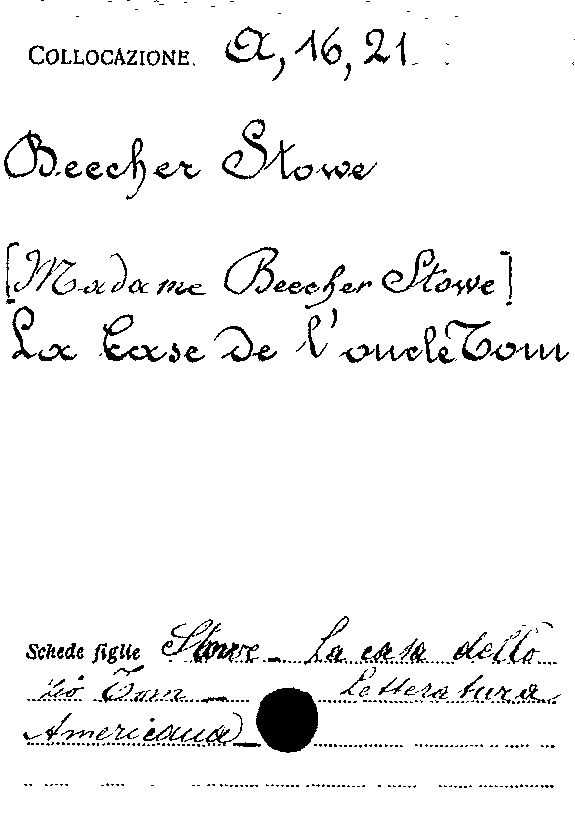 COLLOCAZIONE. A, 16, 21.
Beecher Stowe
[Madame Beecher Stowe]
La Case de l'oncle Tom
Schede figlie Stowe - La casa dello
zio Tom - Letteratura
Americana -